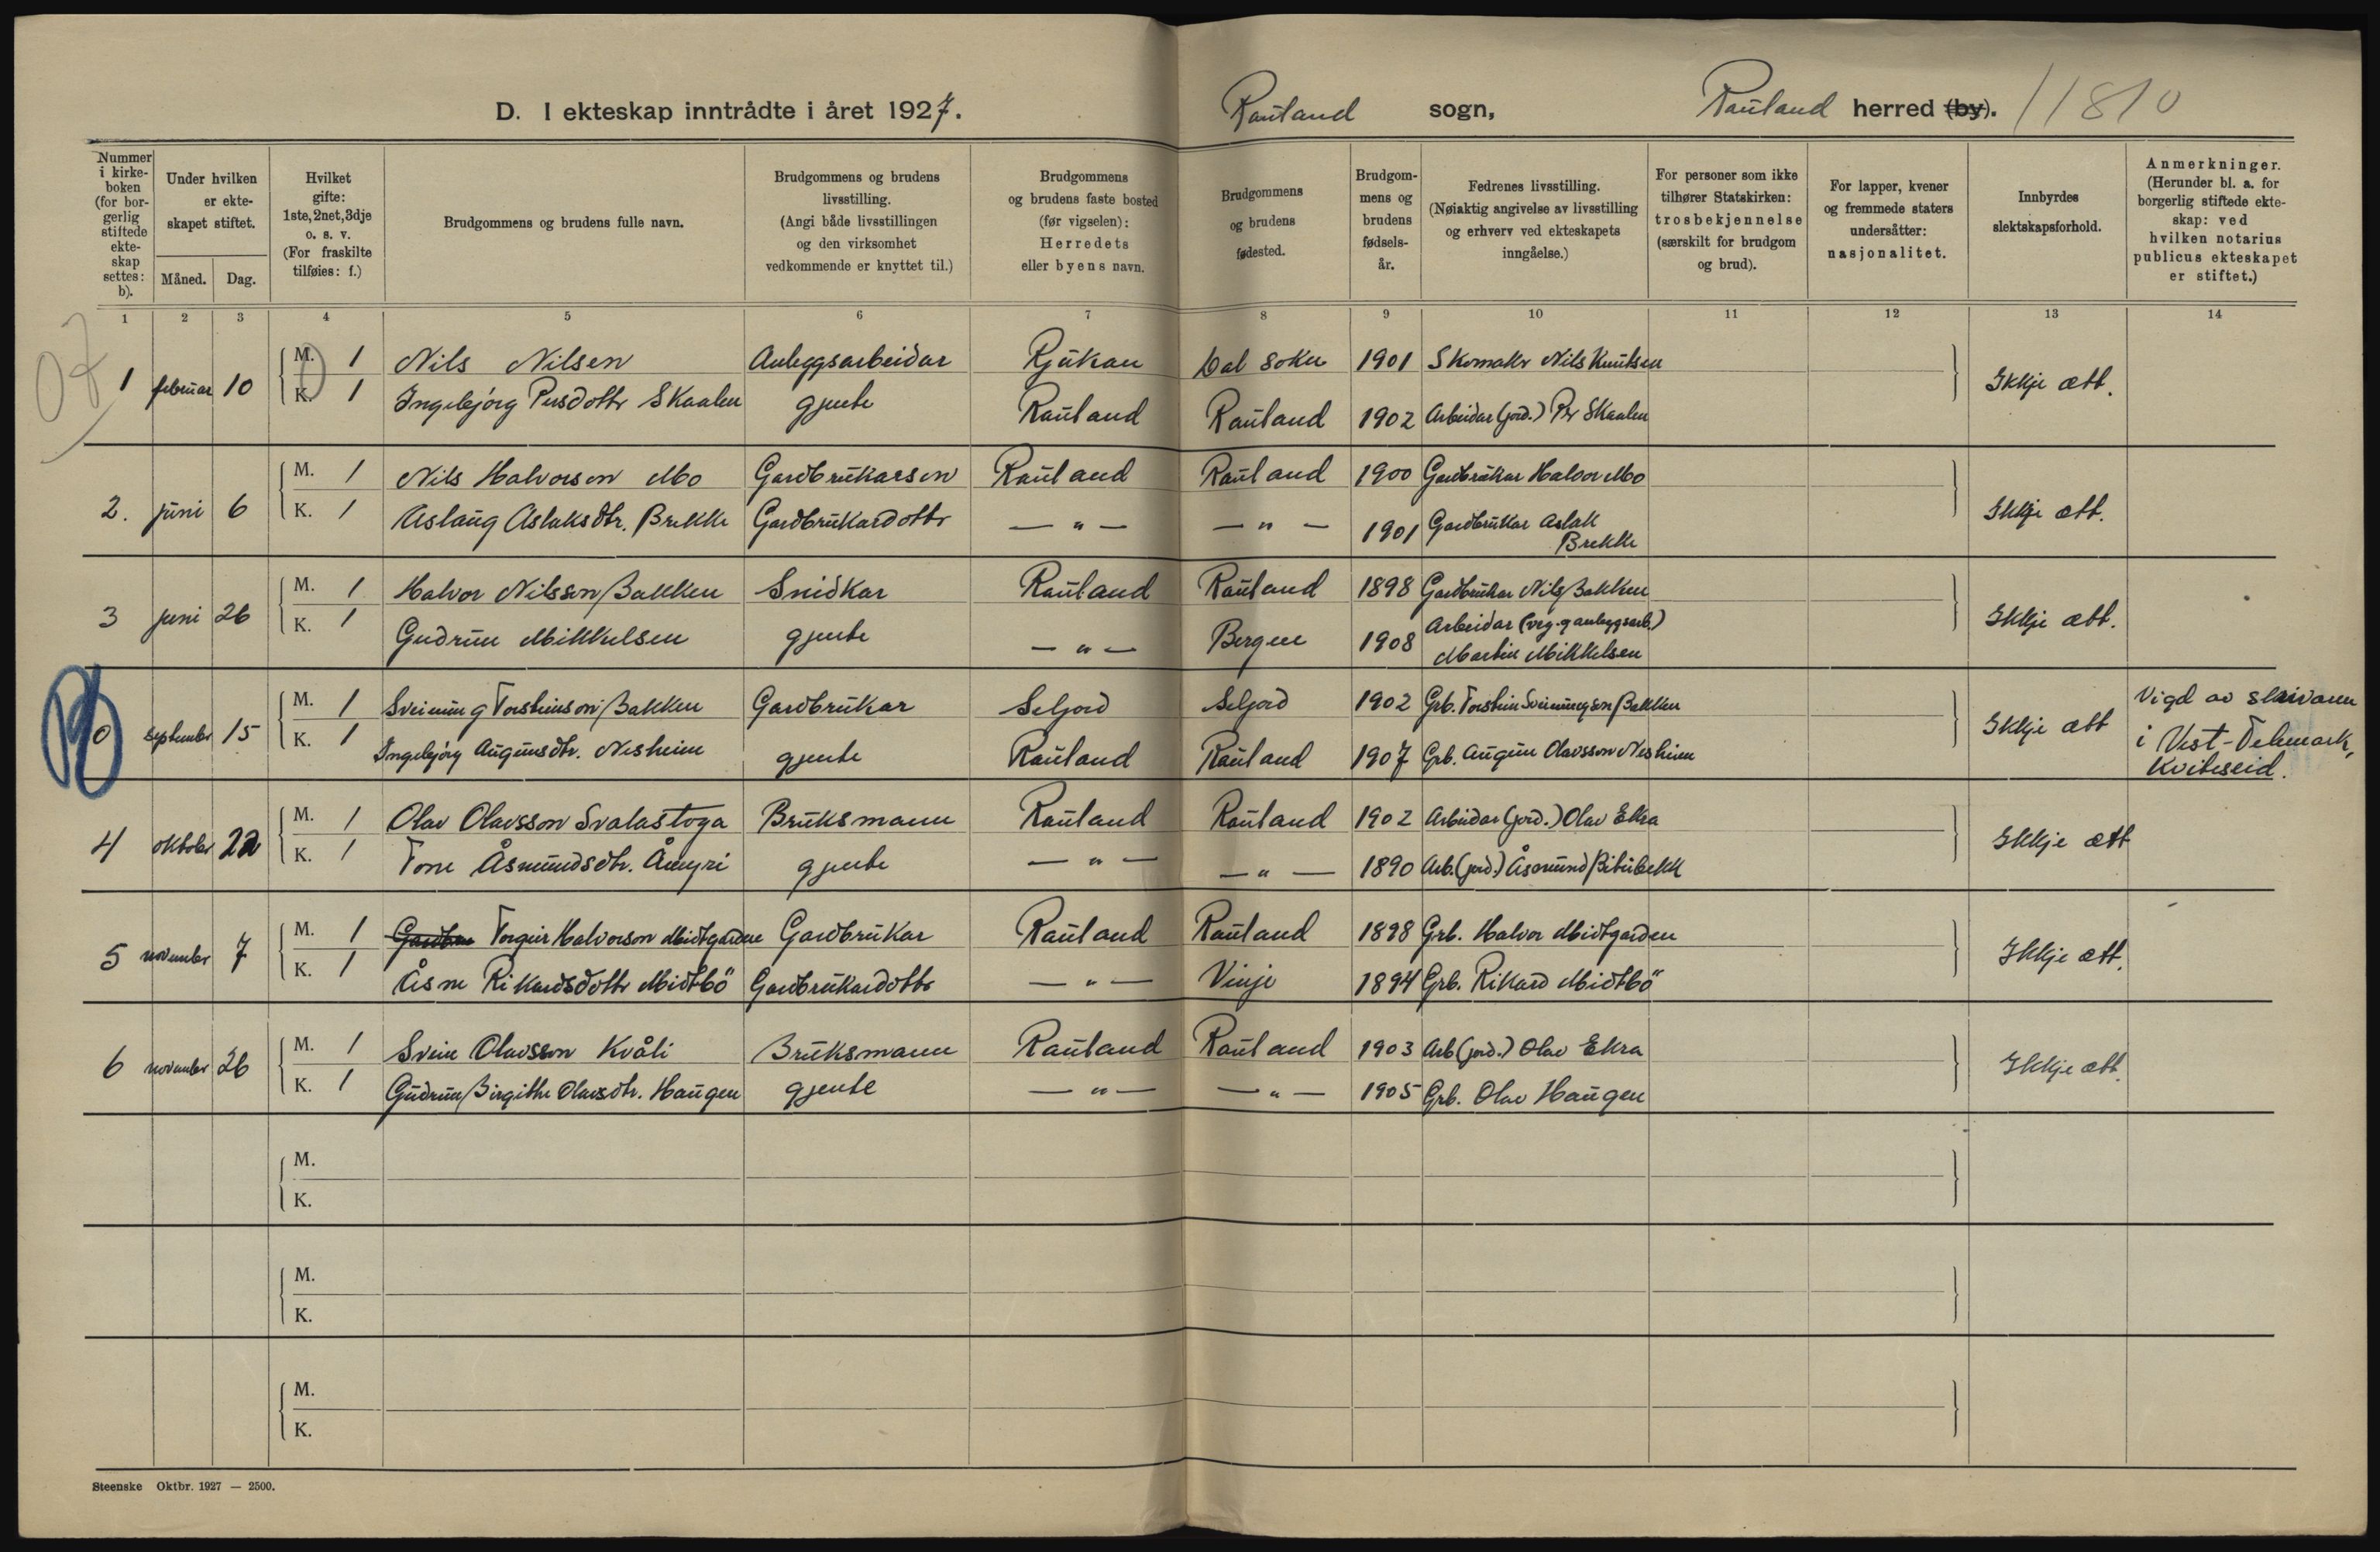 D. I ekteskap inntrådte i året 1927. Rauland sogn, Rauland herred (by). 11810
Nummer i kirke-boken (for bor-gerlig stiftede ekte-skap settes: b).
Under hvilken er ekte-skapet stiftet.
Måned. Dag.
Hvilket gifte: 1ste, 2net, 3dje o. s. v. (For fraskilte tilføies: f.)
Brudgommens og brudens fulle navn.
Brudgommens og brudens livsstilling. (Angi både livsstillingen og den virksomhet vedkommende er knyttet til.)
Brudgommens og brudens faste bosted (før vigselen): Herredets eller byens navn.
Brudgommens og brudens fødested.
Brudgom-mens og brudens fødsels-år.
Fedrenes livsstilling. (Nøiaktig angivelse av livsstilling og erhverv ved ekteskapets inngåelse.)
For personer som ikke tilhører Statskirken: trosbekjennelse (særskilt for brudgom og brud).
For lapper, kvener og fremmede staters undersåtter: nasjonalitet.
Innbyrdes slektskapsforhold.
Anmerkninger. (Herunder bl. a. for borgerlig stiftede ekte-skap: ved hvilken notarius publicus ekteskapet er stiftet.)
1 2 3 4 5 6 7 8 9 10 11 12 13 14
1 februar 10 M. 1 Nils Nilsen Anleggsarbeidar Rjukan Dal sokn 1901 Skomakr Nils Knutsen Ikkje ætt.
K. 1 Ingebjørg Persdottr Skaalen gjente Rauland Rauland 1902 Arbeidar (jord.) Pr Skaalen
2. juni 6 M. 1 Nils Halvorson Mo Gardbrukarson Rauland Rauland 1900 Gardbrukar Halvor Mo Ikkje ætt.
K. 1 Aslaug Aslaksdtr. Brekke Gardbrukardottr — " — — " — 1901 Gardbrukar Aslak Brekke
3 juni 26 M. 1 Halvor Nilsson Bakken Snidkar Rauland Rauland 1898 Gardbrukar Nils Bakken Ikkje ætt.
K. 1 Gudrun Mikkelsen gjente — " — Bergen 1908 Arbeidar (veg- og anleggsarb.) Martin Mikkelsen
0 september 15 M. 1 Sveinung Torsteinson Bakken Gardbrukar Seljord Seljord 1902 Grb. Torstein Sveinungson Bakken Ikkje ætt Vigd av skrivaren i Vest-Telemark, Kviteseid.
K. 1 Ingebjørg Augunsdtr. Nesheim gjente Rauland Rauland 1907 Grb. Augun Olavsson Nesheim
4 oktober 22 M. 1 Olav Olavsson Svalastoga Bruksmann Rauland Rauland 1902 Arbeidar (jord.) Olav Ekra Ikkje ætt
K. 1 Tone Åsmundsdtr. Åmyri gjente — " — — " — 1890 Arb. (jord.) Åsmund Bitubekk
5 november 7 M. 1 Torgeir Halvorson Midtgarden Gardbrukar Rauland Rauland 1898 Grb. Halvor Midtgarden Ikkje ætt.
K. 1 Åsne Rikardsdottr Midtbö Gardbrukardottr — " — Vinje 1894 Grb. Rikard Midtbö
6 november 26 M. 1 Svein Olavsson Kvåli Bruksmann Rauland Rauland 1903 Arb (jord.) Olav Ekra Ikkje ætt.
K. 1 Gudrun Birgithe Olavsdtr. Haugen gjente — " — — " — 1905 Grb. Olav Haugen
M.
K.
M.
K.
M.
K.
Steenske Oktbr. 1927 — 2500.